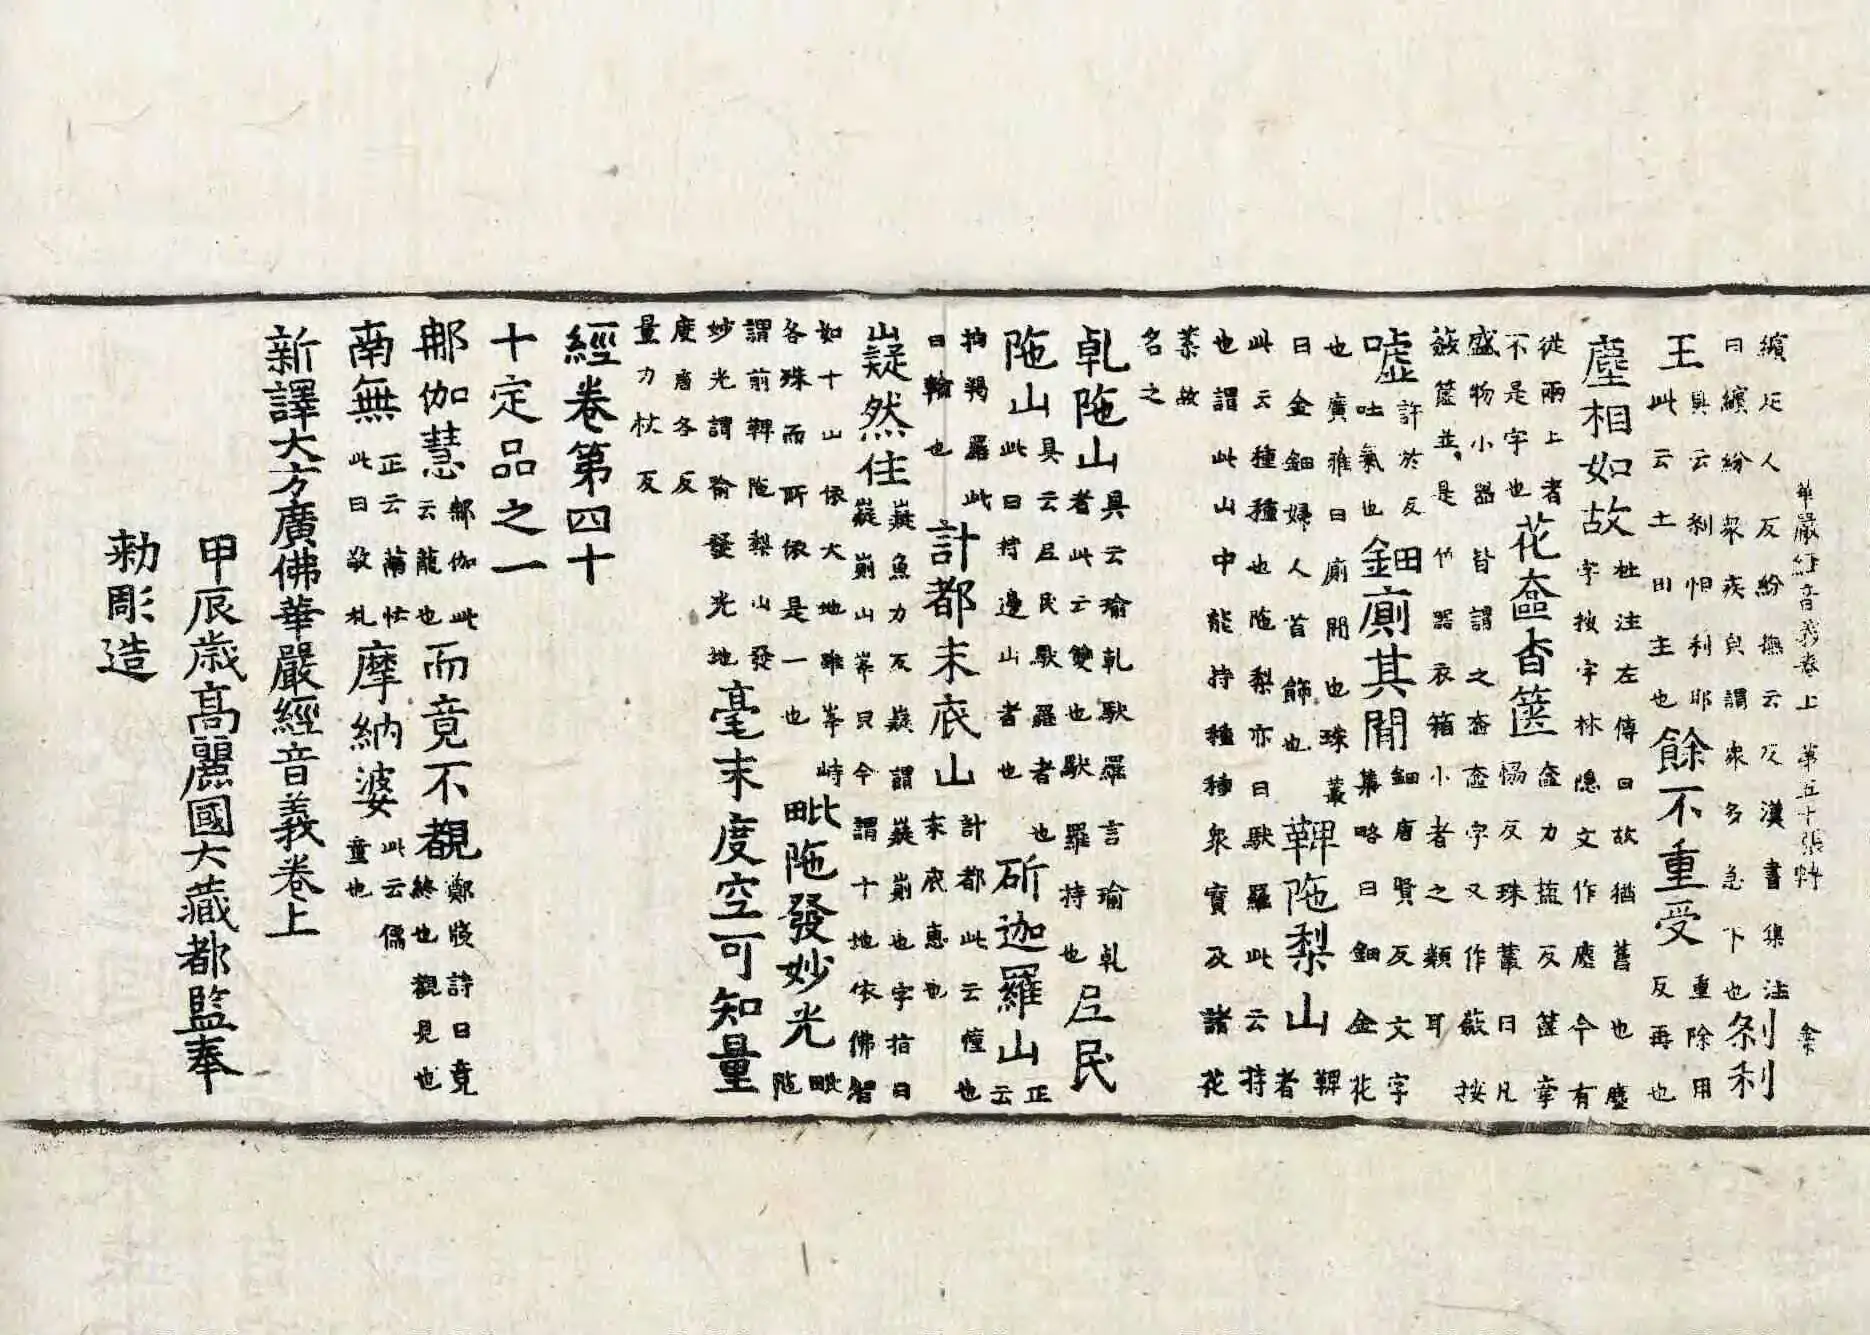 華嚴經音義卷上 第五十張
繽疋人反紛撫云反漢書集注曰繽紛衆疾皃謂衆多急下也剎利
王具云剎怛利耶此云土田主也餘不重受重除用反再也
塵相如故杜注左傳曰故猶舊也塵字按字林隱文作塵今有
從兩上者不是字也花奩香篋奩力盐反篋牽愜反珠叢曰凡
盛物小器皆謂之奩奩字又作籢按籢篋並是竹器衣箱小者之類耳
嘘許於反吐氣也鈿廁其間鈿唐賢反文字集略曰鈿金花
也廣雅曰廁間也珠叢曰金鈿婦人首飾也鞞陁梨山鞞者
此云種種也陁梨亦曰馱羅此云持也謂此山中能持種種衆寶及諸花
蘂故名之
乹陁山具云瑜乹馱羅言瑜乹者此云雙也馱羅持也尼民
陁山具云尼民馱羅者也此曰持邊山者也斫迦羅山正云
拘羯羅此曰輪也計都末底山計都此云幢也末底惠也
嶷然住嶷魚力反嶷謂嶷崱也字指曰嶷崱山峯皃今謂十地依佛智
如十山依大地雖峯峙各殊而所依是一也毗陁發妙光毗陁
謂前鞞陁梨山發妙光謂喻發光地毫末度空可知量
度唐各反量力杖反
經卷第四十
十定品之一
那伽慧那伽此云龍也而竟不覩鄭牋詩曰竟終也覩見也
南無正云蒳忙此曰敬礼摩納婆此云儒童也
新譯大方廣佛華嚴經音義卷上
甲辰歲高麗國大藏都監奉
勅彫造